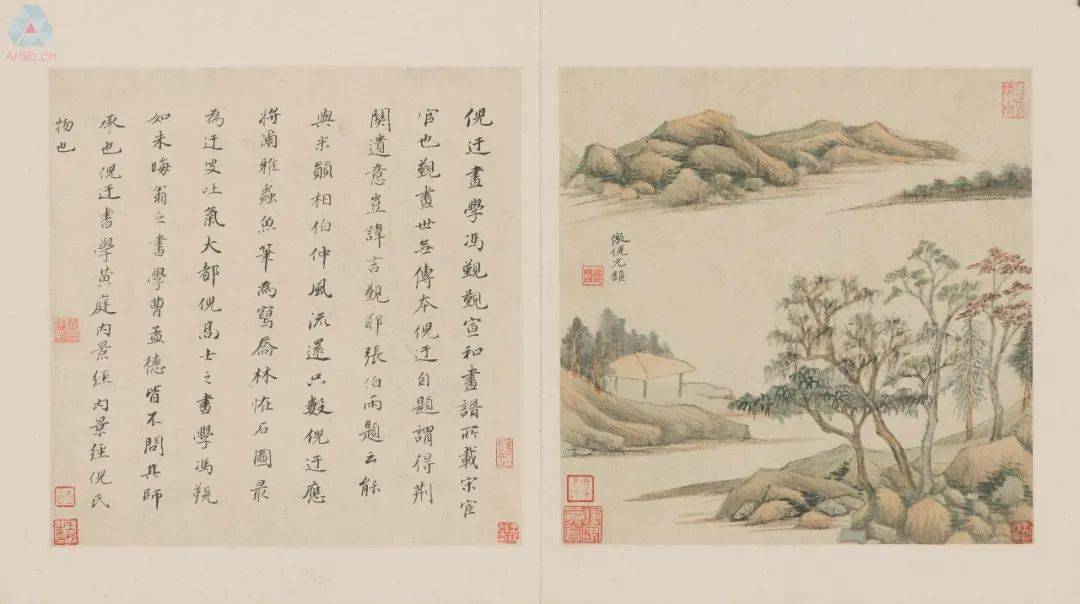 Artlib.cn
倪迂畫學馮覲覲宣和畫譜所載宋宦
官也覲畫世無傳本倪迂自題謂得荆
關遺意豈諱言覲耶張伯雨題云餘
與米顛相伯仲風流還只數倪迂應
將爾雅蟲魚筆為寫喬林恠石圖最
為迂叟吐氣大都倪高士之畫學馮覲
如朱晦翁之書學曹孟德皆不問其師
承也倪迂書學黄庭内景經内景經倪氏
物也
倣倪元鎮